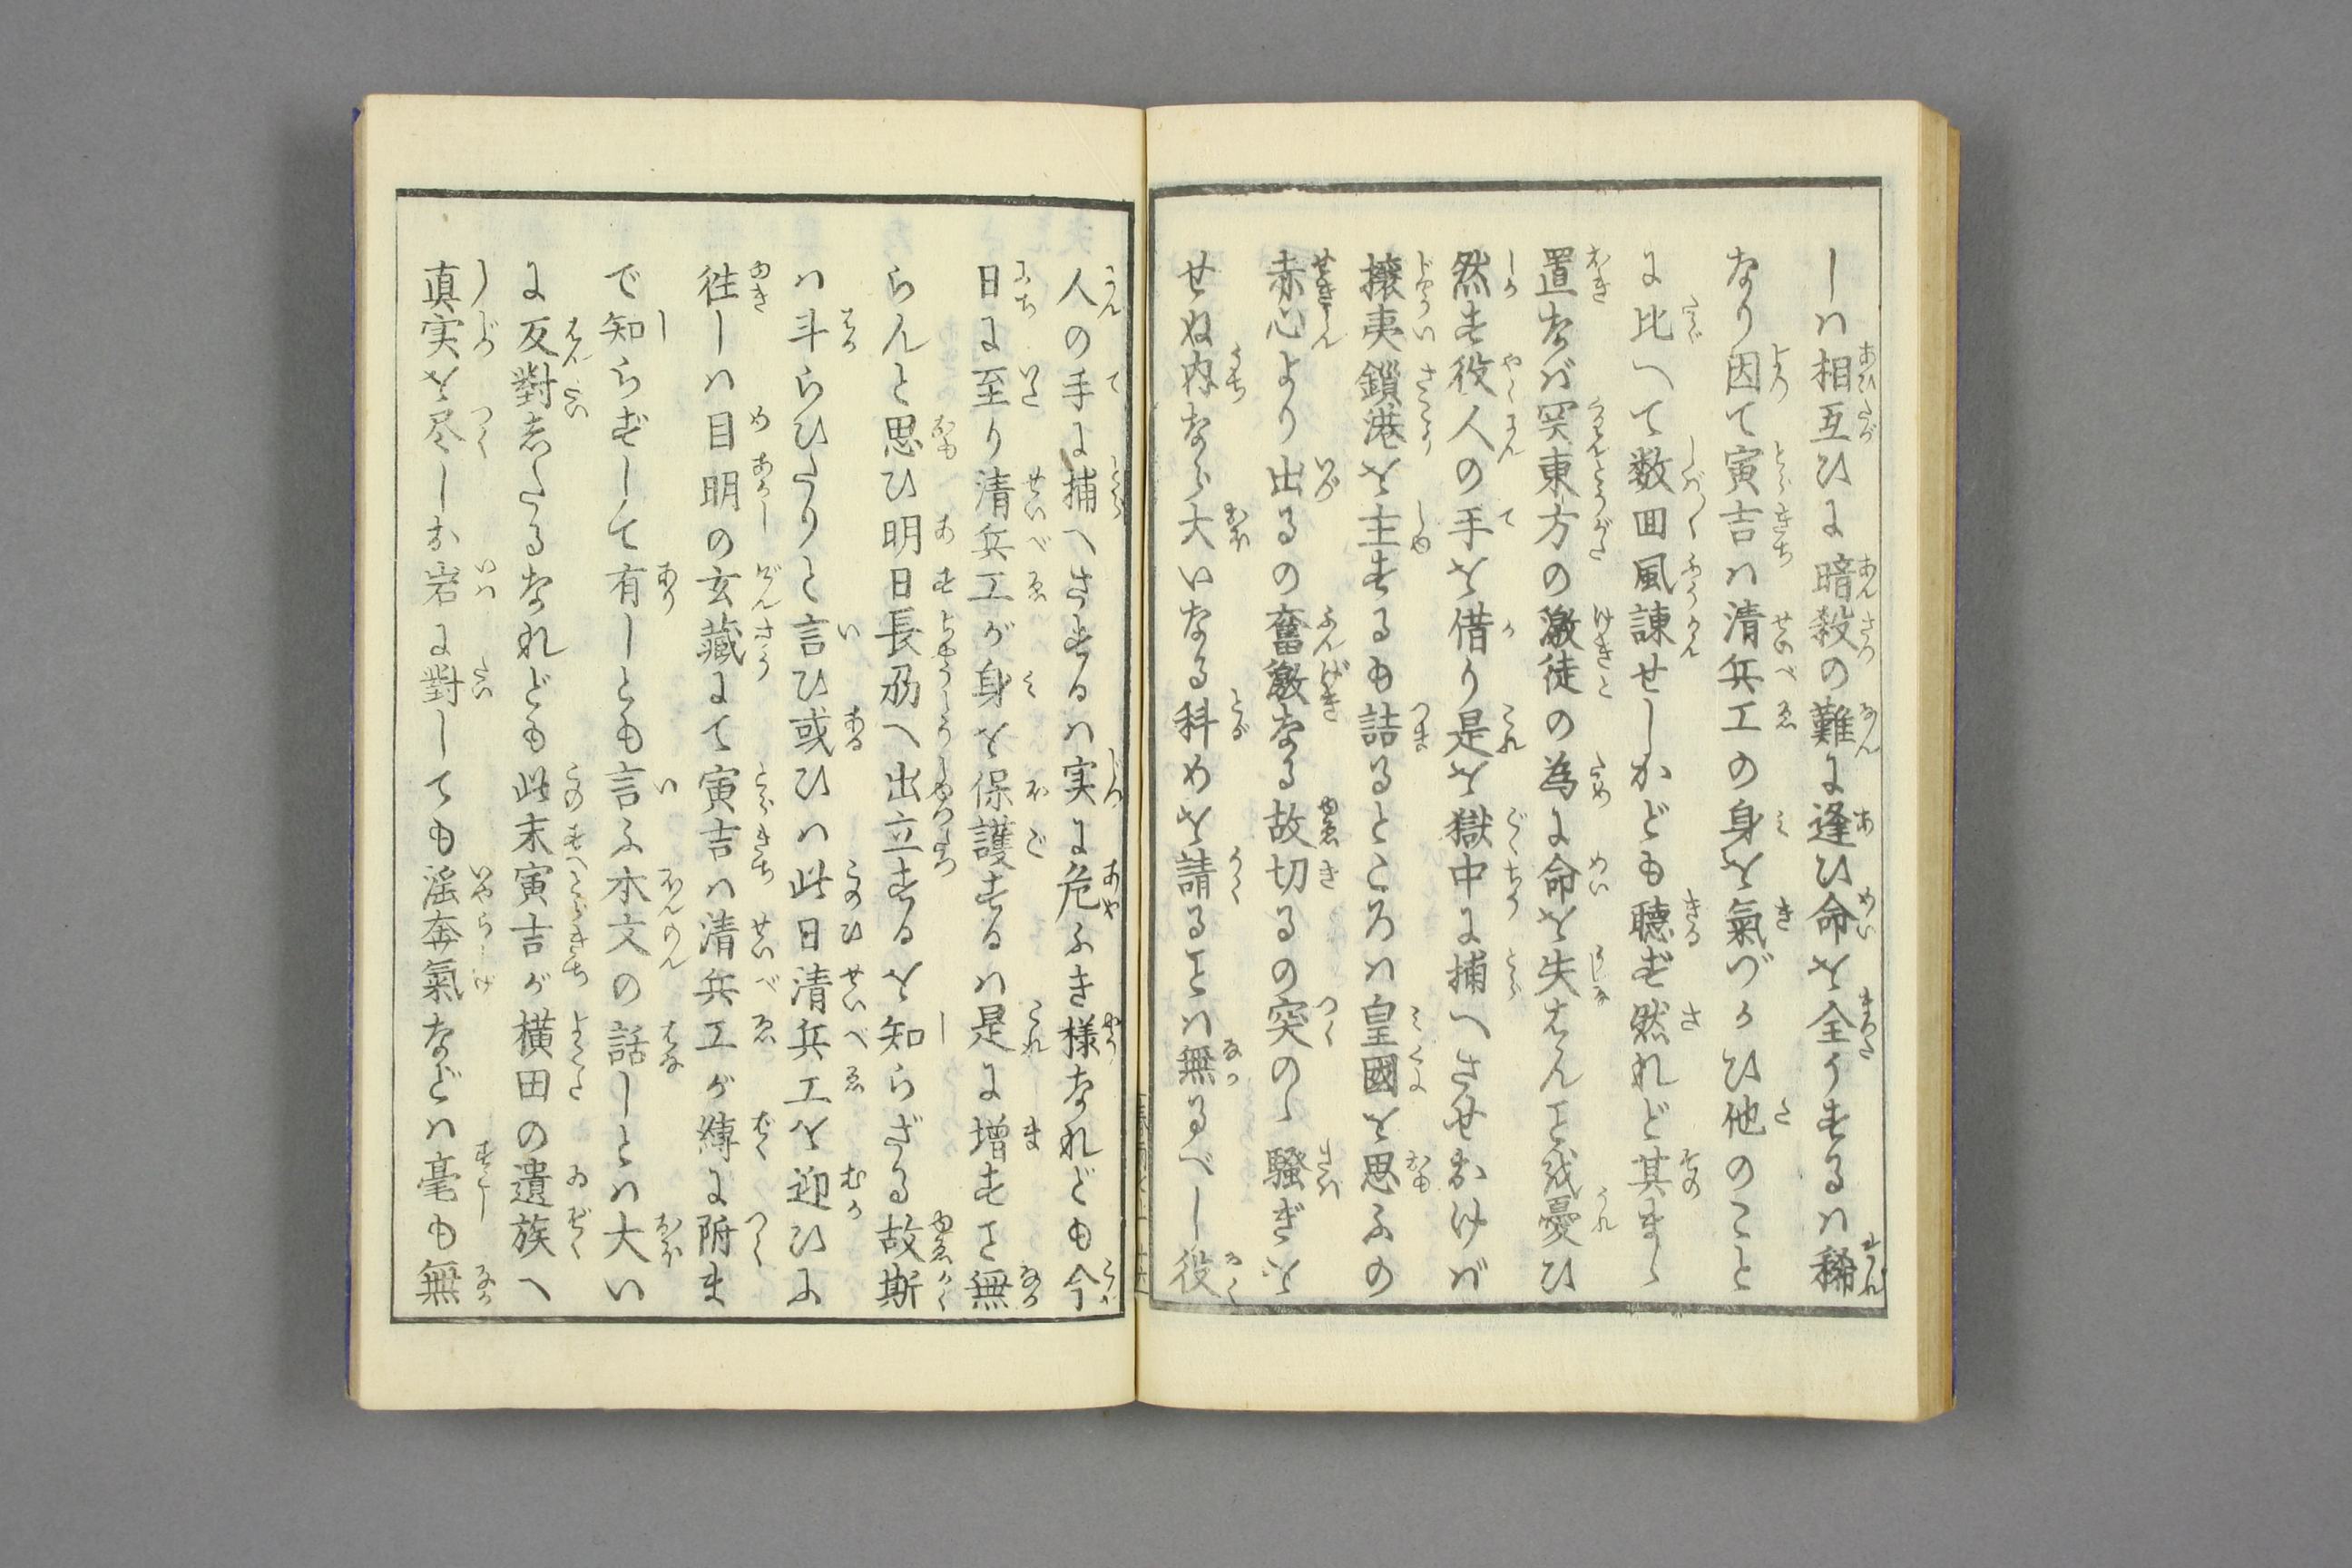 しハ相互ひに暗殺の難に逢ひ命を全うするハ稀
なり因て寅吉ハ清兵エの身を氣づかひ他のこと
に比へて数回風諌せしかども聴ず然れど其まゝ
置なバ関東方の激徒の為に命を失はんを憂ひ
然す役人の手を借り是を獄中に捕へさせおけバ
攘夷鎖港を主するも詰るところハ皇國を思ふの
赤心より出るの奮激なる故切るの突のゝ騒ぎを
せぬ内なら大いなる科めを請ることハ無るべし役
人の手に捕へさするハ実に危ふき様なれども今
日に至り清兵エが身を保護するハ是に増すこと無
らんと思ひ明日長刕へ出立するを知らざる故斯
ハ斗らひたりと言ひ或ひハ此日清兵エを迎ひに
徃しハ目明の玄藏にて寅吉ハ清兵エが縛に附ま
で知らずして有しとも言ふ本文の話しとハ大い
に反對したるなれども此末寅吉が横田の遺族へ
真実を尽しお岩に對しても滛奔氣などハ毫も無